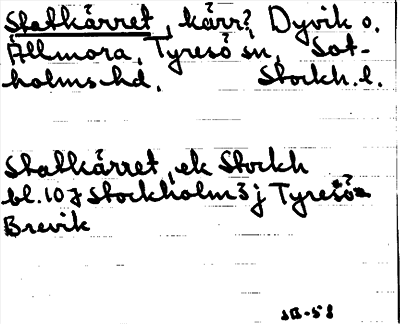 Statkärret, kärr? Dyvik o.
Ällmora, Tyresö sn, Sot-
holms hd. Stockh. l.
Statkärret, ek Stockh
bl. 10 J Stockholm 3 j Tyresö
Brevik